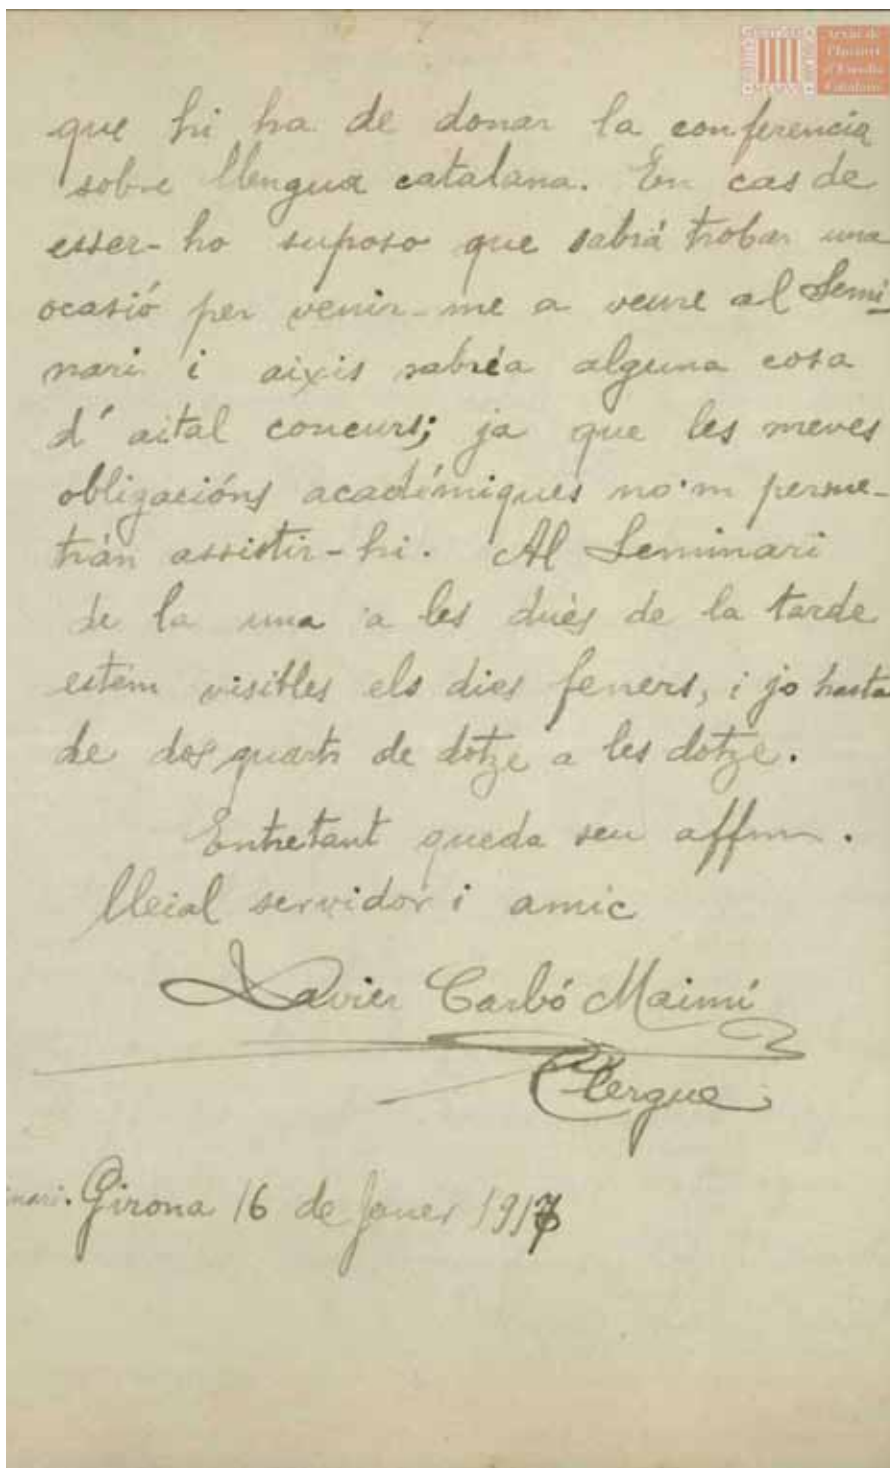 Arxiu de
l'Institut
d'Estudis
Catalans
que hi ha de donar la conferencia
sobre llengua catalana. En cas de
esser-ho suposo que sabrá trobar una
ocasió per venir-me a veure al Semi-
nari i aixis sabréa alguna cosa
d'aital concurs; ja que les meves
obligacións académiques no'm perme-
trán assistir-hi. Al Seminari
de la una a les dués de la tarde
estém visibles els dies feners, i jo hasta
de dos quarts de dotze a les dotze.
Entretant queda seu affm.
lleial servidor i amic
Xavier Carbó Maimí
Clergue
inari. Girona 16 de Janer 1917